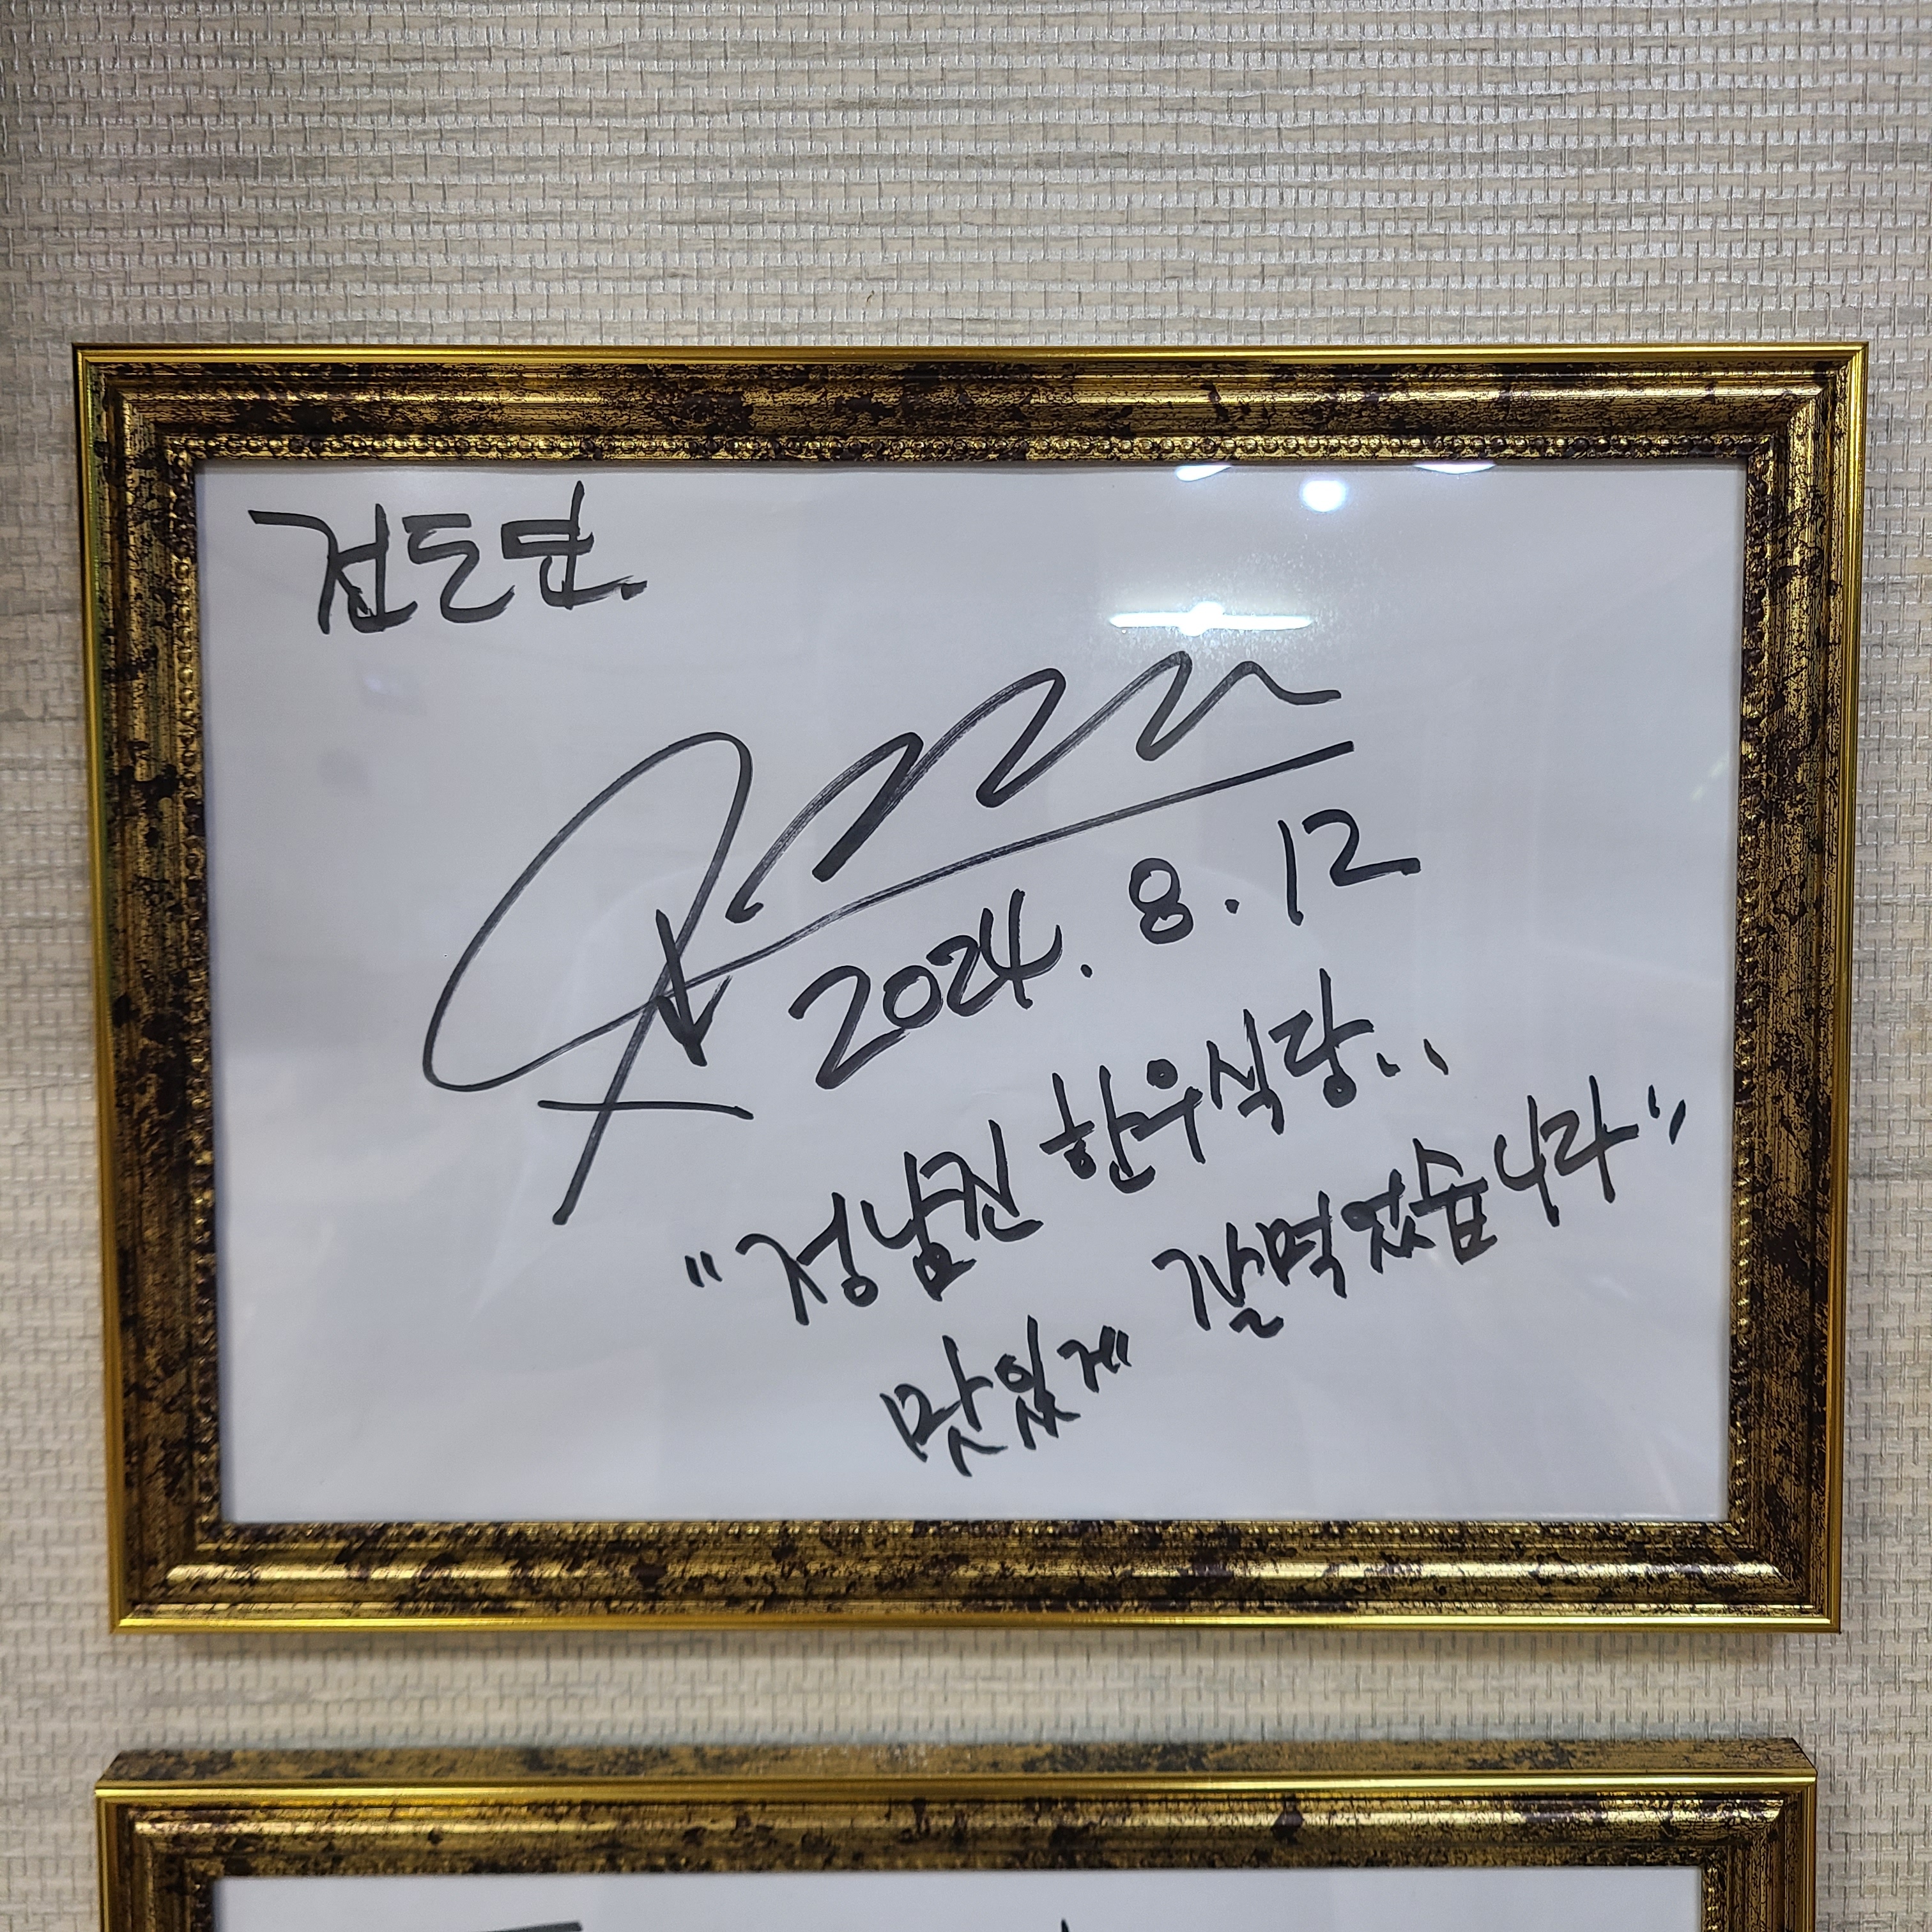 2024. 8. 12
"정남진 한우식당..
맛있게 잘먹었습니다"